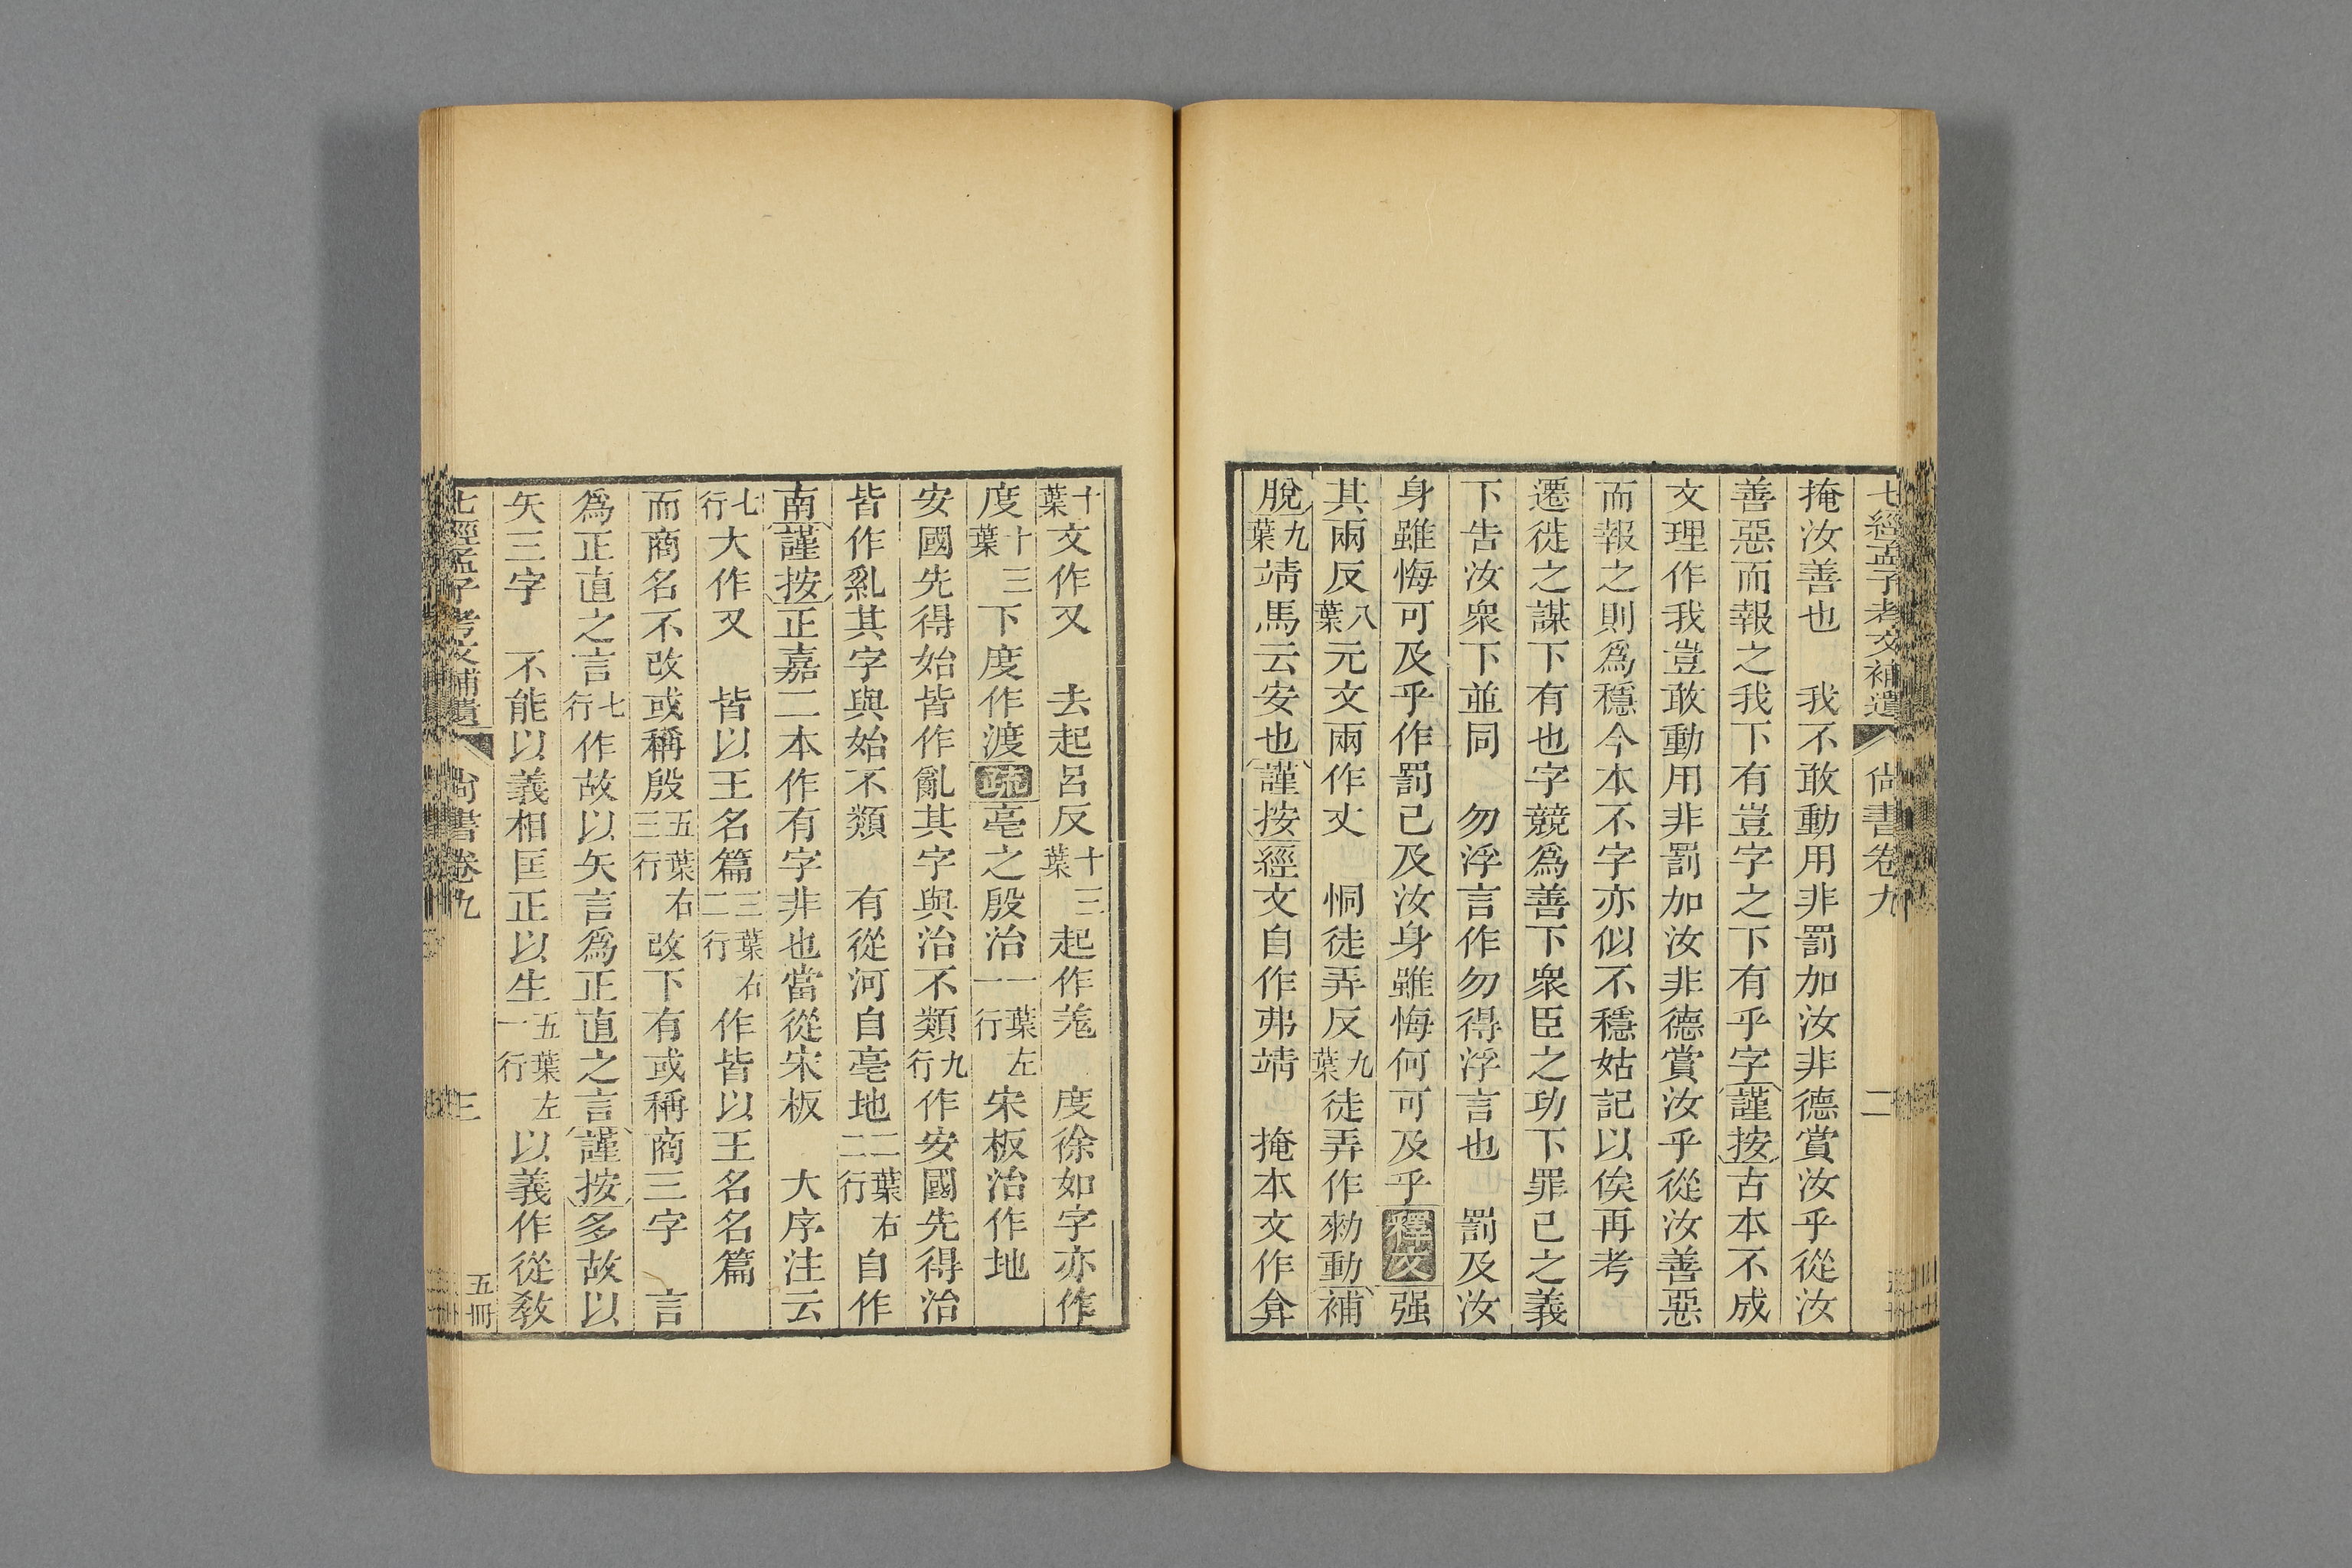 七經孟子考文補遺 尙書卷九 二
掩汝善也 我不敢動用非罰加汝非德賞汝乎從汝
善惡而報之我下有豈字之下有乎字謹按古本不成
文理作我豈敢動用非罰加汝非德賞汝乎從汝善惡
而報之則爲穩今本不字亦似不穩姑記以俟再考
遷徙之謀下有也字競爲善下衆臣之功下罪己之義
下告汝衆下並同 勿浮言作勿得浮言也 罰及汝
身雖悔可及乎作罰己及汝身雖悔何可及乎釋文强
其兩反八葉元文兩作丈 恫徒弄反九葉徒弄作勑動補
脫九葉靖馬云安也謹按經文自作弗靖 掩本文作弇
十葉文作又 去起呂反十三葉起作羌 度徐如字亦作
度十三葉下度作渡疏亳之殷治一葉左一行宋板治作地
安國先得始皆作亂其字與治不類九行作安國先得治
皆作乿其字與始不類 有從河自亳地二葉右二行自作
南謹按正嘉二本作有字非也當從宋板 大序注云
七行大作又 皆以王名篇三葉右二行作皆以王名名篇
而商名不改或稱殷五葉右三行改下有或稱商三字 言
爲正直之言七行作故以矢言爲正直之言謹按多故以
矢三字 不能以義相匡正以生五葉左一行以義作從敎
七經孟子考文補遺 尙書卷九 三 五冊